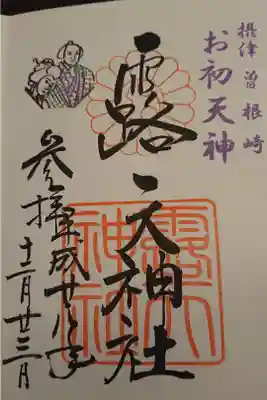 摂津 曽根崎
お初天神
露天神社
参拝 平成廿八年
月廿三日
露天
神社